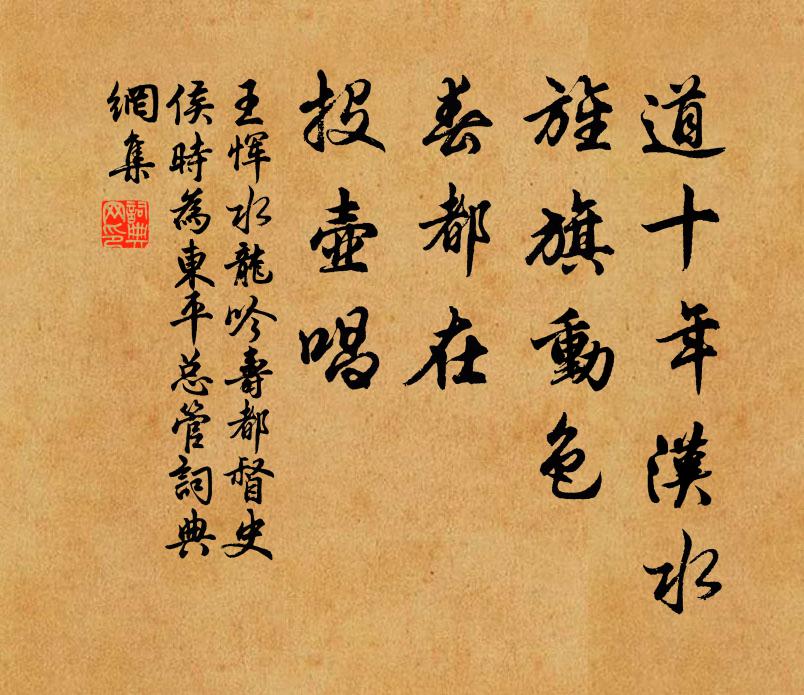 道十年漢水
旌旗動色
春都在
投壺唱
王惲水龍吟壽都督史
侯時為東平总管詞典
網集
詞典
网印